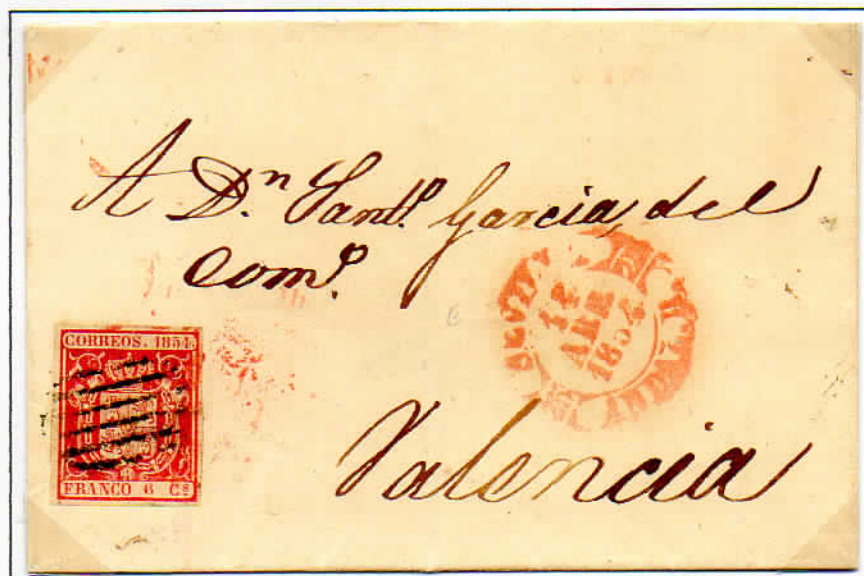 A Dn. Santo. Garcia, del
Como.
12
ABR
1854
CORREOS. 1854.
FRANCO 6 Cs
Valencia